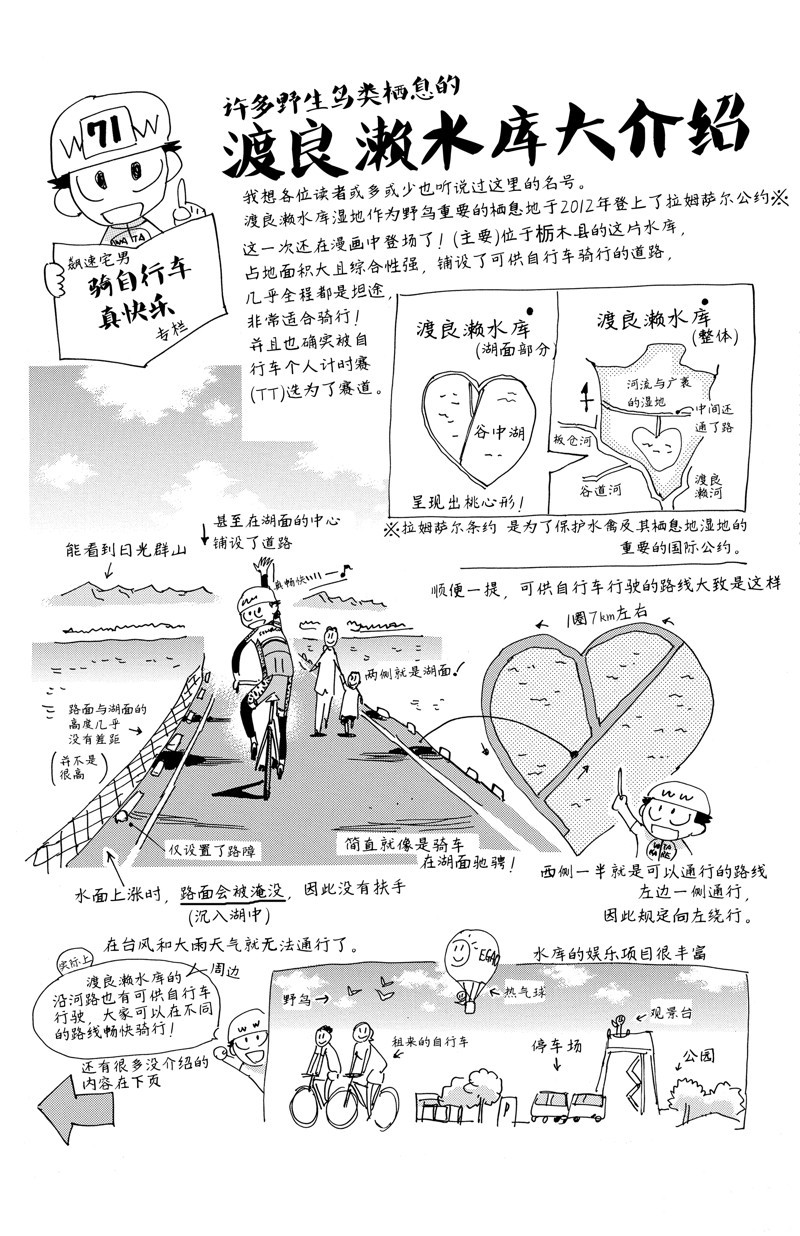 许多野生鸟类栖息的
渡良濑水库大介绍
71
飙速宅男
骑自行车
真快乐
专栏
我想各位读者或多或少也听说过这里的名号。
渡良濑水库湿地作为野鸟重要的栖息地于2012年登上了拉姆萨尔公约※
这一次还在漫画中登场了！(主要)位于栃木县的这片水库，
占地面积大且综合性强，铺设了可供自行车骑行的道路，
几乎全程都是坦途，
非常适合骑行！
并且也确实被自
行车个人计时赛
(TT)选为了赛道。
渡良濑水库
(湖面部分)
谷中湖
呈现出桃心形！
渡良濑水库
(整体)
河流与广袤
的湿地
中间还
通了路
板仓河
谷道河
渡良
濑河
※拉姆萨尔条约 是为了保护水禽及其栖息地湿地的
重要的国际公约。
甚至在湖面的中心
铺设了道路
能看到日光群山
真畅快
两侧就是湖面！
路面与湖面的
高度几乎
没有差距
(并不是
很高)
仅设置了路障
简直就像是骑车
在湖面驰骋！
水面上涨时，路面会被淹没，因此没有扶手
(沉入湖中)
在台风和大雨天气就无法通行了。
顺便一提，可供自行车行驶的路线大致是这样
1圈7km左右
西侧一半就是可以通行的路线
左边一侧通行，
因此规定向左绕行。
实际上
渡良濑水库的
周边
沿河路也有可供自行车
行驶，大家可以在不同
的路线畅快骑行！
还有很多没介绍的
内容在下页
水库的娱乐项目很丰富
野鸟
EGAO
热气球
租来的自行车
P
停车场
观景台
公园